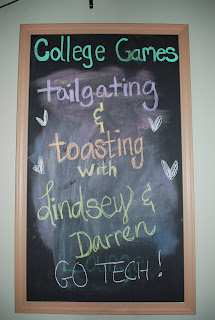 College Games
tailgating
&
toasting
with
Lindsey &
Darren
GO TECH!